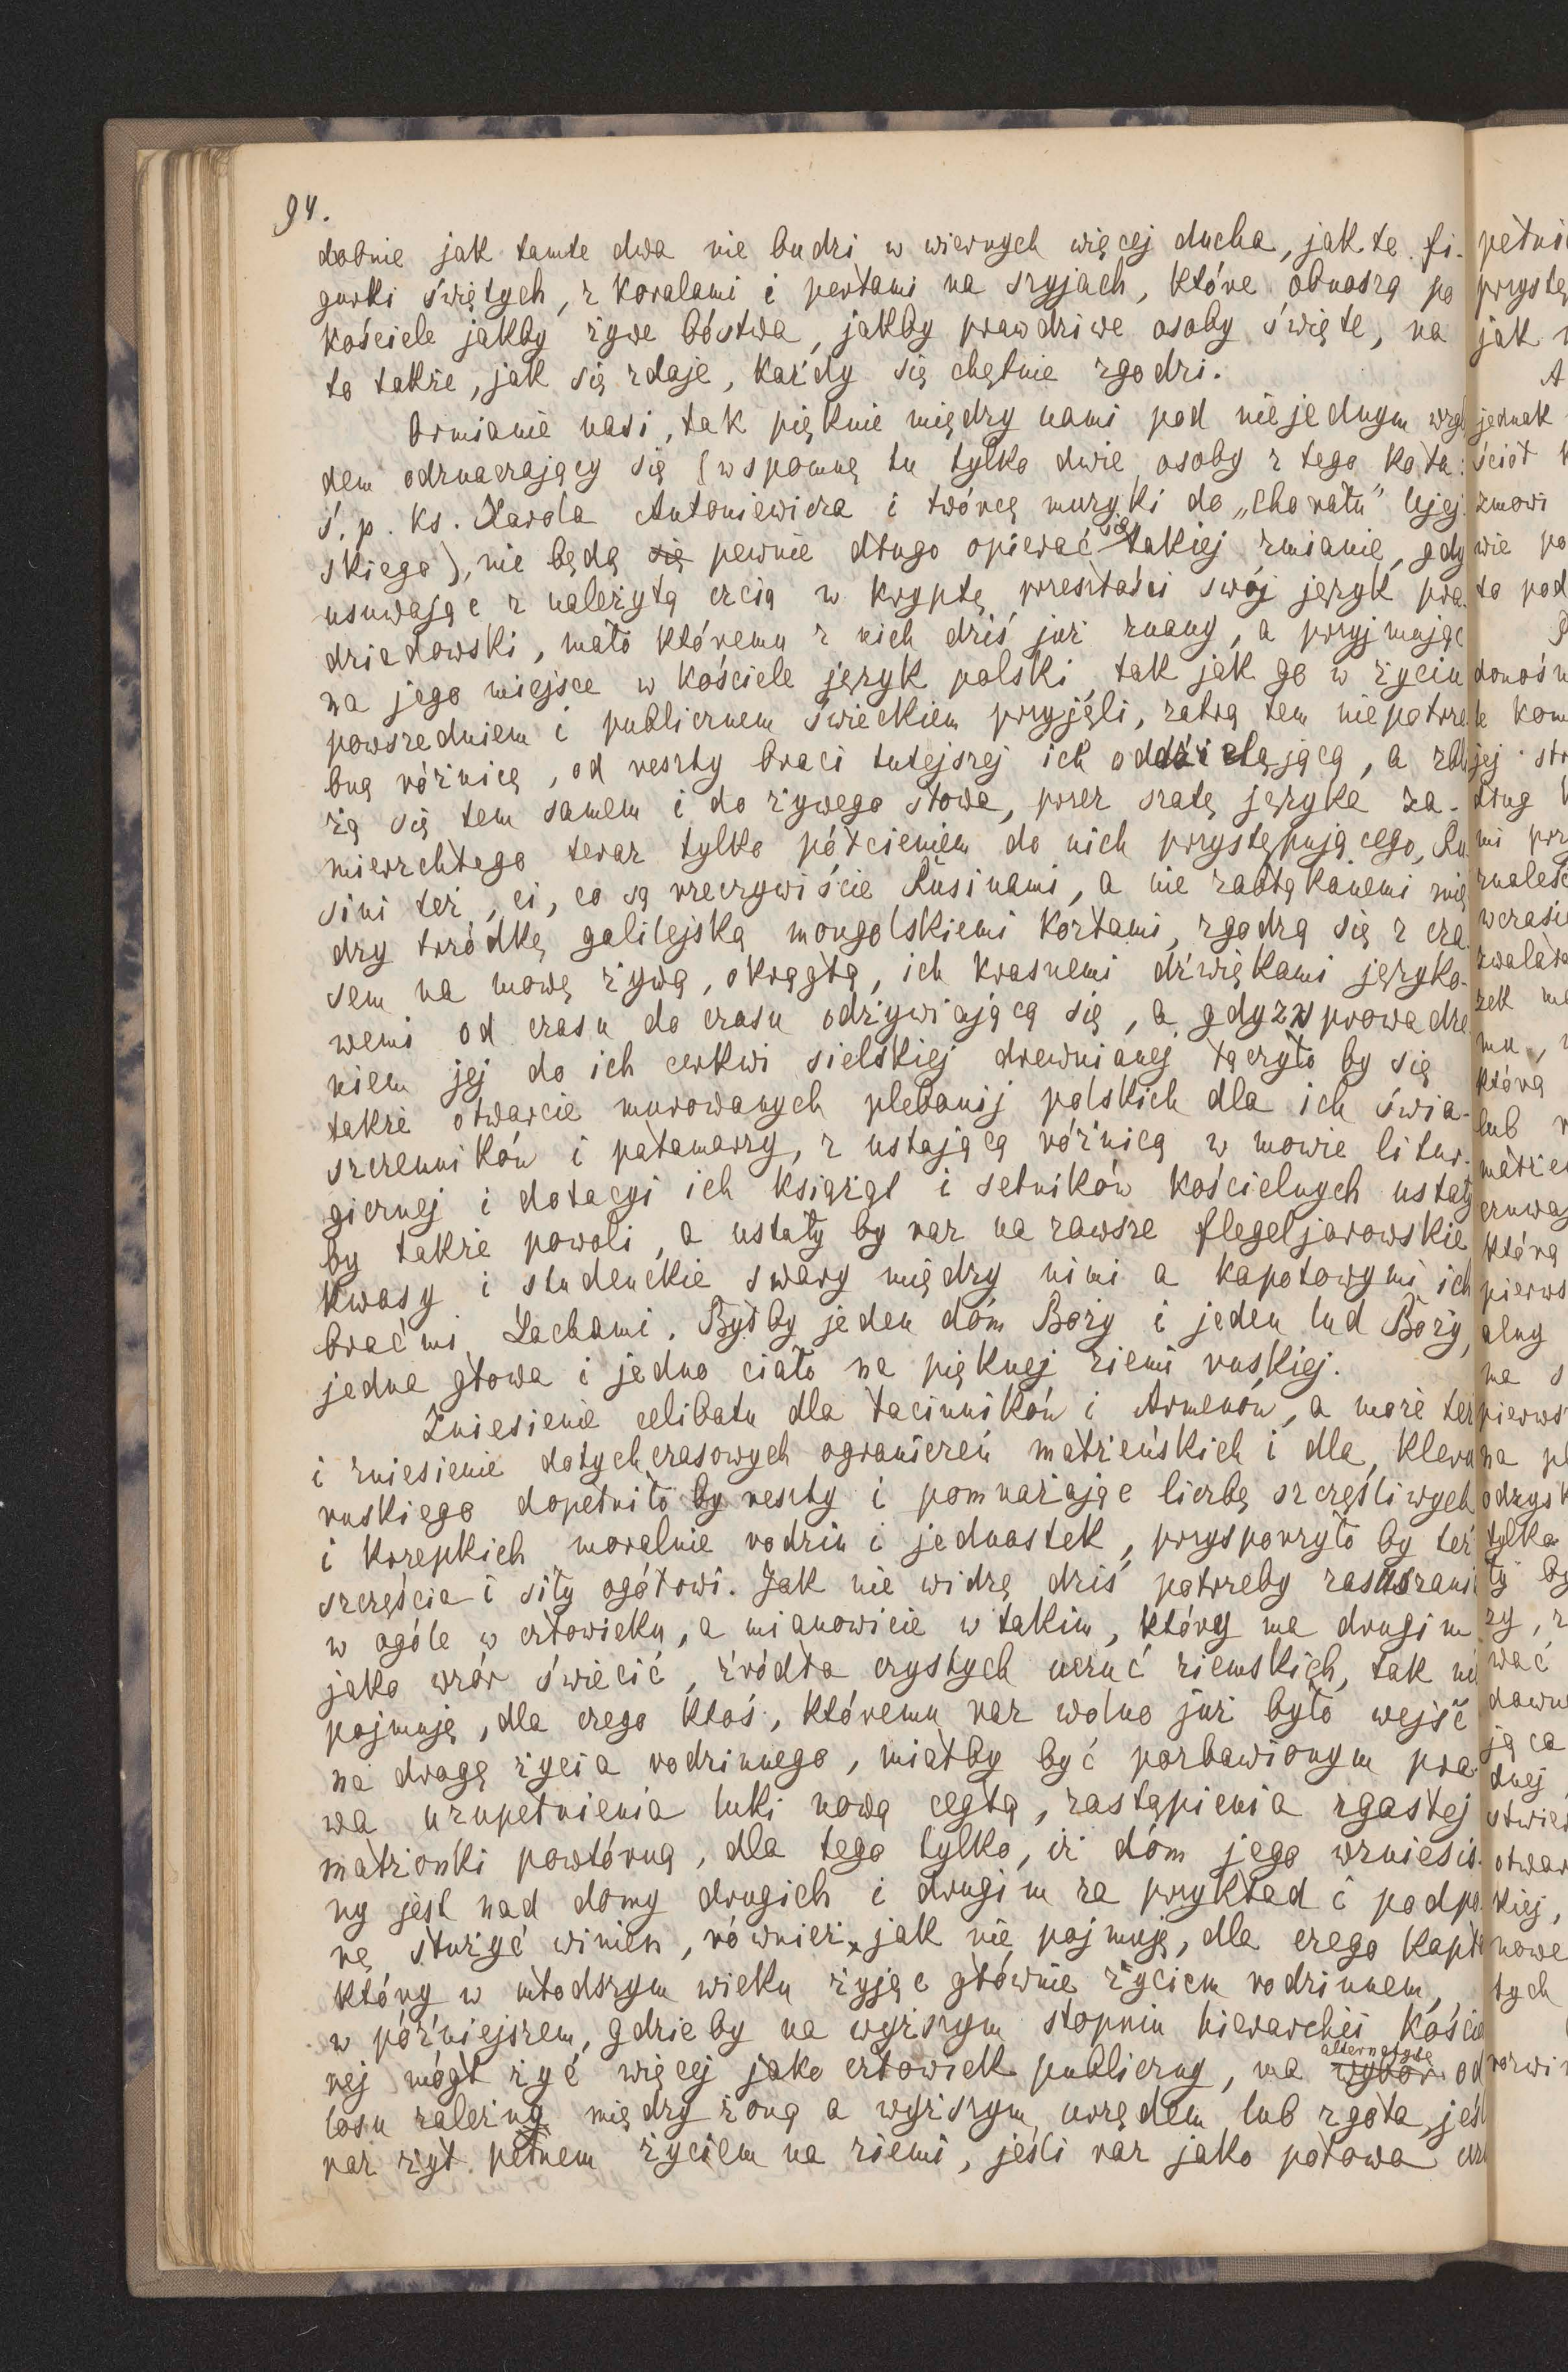 94.
dobnie jak tamte dwa nie budzi w wiernych więcej ducha, jak te fi-
gurki świętych, z koralami i perłami na szyjach, które obnoszą po
kościele jakby żywe bóstwa, jakby prawdziwe osoby święte, na
to także, jak się zdaje, każdy się chętnie zgodzi.
Ormianie nasi, tak pięknie między nami pod niejednym wzglę
dem odznaczający się (wspomnę tu tylko dwie osoby z tego koła:
ś. p. ks. Karola Antoniewicza i twórcę muzyki do „Chorału” Ujej-
skiego), nie będą się pewnie długo opierać się takiej zmianie, gdy
usuwając z należytą czcią w kryptę przeszłości swój język pra-
dziadowski, mało któremu z nich dziś już znany, a przyjmując
na jego miejsce w kościele język polski tak jak go w życiu
powszedniem i publicznem świeckiem przyjęli, zatrą tem niepotrze
bną różnicę, od reszty braci tutejszej ich oddzielającą, a zbli
żą się tem samem i do żywego słowa, przez szatę języka za-
mierzchłego teraz tylko półcieniem do nich przystępującego. Ru
sini też, ci, co są rzeczywiście Rusinami, a nie zabłąkanemi mię
dzy trzódkę galilejską mongolskiemi kozłami, zgodzą się z cza
sem na mowę żywą, okrągłą, ich krasnemi dźwiękami języko-
wemi od czasu do czasu odżywiającą się, a gdy z wprowadze
niem jej do ich cerkwi sielskiej drewnianej łączyło by się
także otwarcie murowanych plebanij polskich dla ich świa-
szczenników i pałamarzy, z ustającą różnicą w mowie litur-
gicznej i dotacyi ich książąt i setników kościelnych ustały
by także powoli, a ustały by raz na zawsze flegeljarowskie
kwasy i studenckie swary między nimi a kapotowymi ich
braćmi Lachami. Byłby jeden dóm Boży i jeden lud Boży,
jedna głowa i jedno ciało na pięknej ziemi ruskiej.
Zniesienie celibatu dla łacinników i Armenów, a może też
i zniesienie dotychczasowych ograniczeń małżeńskich i dla kleru
ruskiego dopełniło by reszty i pomnażając liczbę szczęśliwych
i krzepkich moralnie rodzin i jednostek, przysporzyło by też
szczęścia i siły ogółowi. Jak nie widzę dziś potrzeby zasuszani
w ogóle w człowieku, a mianowicie w takim, który ma drugim
jako wzór świecić, źródła czystych uczuć ziemskich, tak nie
pojmuję, dla czego ktoś, któremu raz wolno już było wejść
na drogę życia rodzinnego, miałby być pozbawionym pra-
wa uzupełnienia luki nową cegłą, zastąpienia zgasłej
małżonki powtórną, dla tego tylko, iż dóm jego wzniesio-
ny jest nad domy drugich i drugim za przykład i podpo
rę służyć winien, również jak nie pojmuję, dla czego kapła
który w młodszym wieku żyjąc głównie życiem rodzinnem,
w późniejszem, gdzieby na wyższym stopniu hierarchii kościel
nej mógł żyć więcej jako człowiek publiczny, ma wybór alternatywę od
losu zależną między żoną a wyższym urzędem lub zgoła, jeśl
raz żył pełnem życiem na ziemi, jeśli raz jako połowa